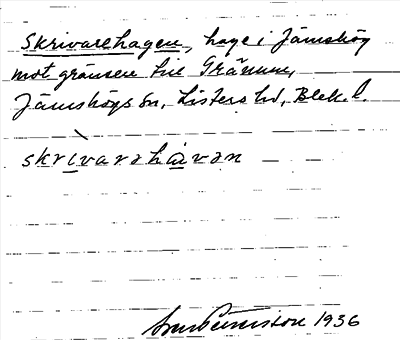 Skrivarehagen, hage i Jämshög
mot gränsen till Gränum,
Jämshögs sn, Listers hd, Blek. l.
skrivarəhàvən
1936